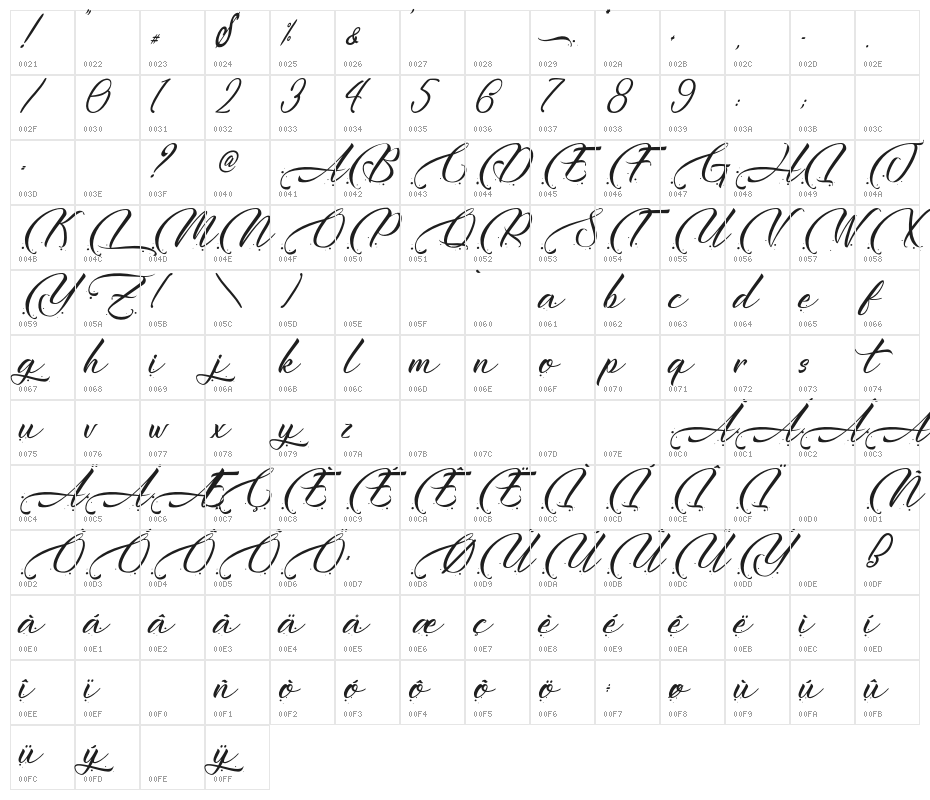 ! " # $ % & ' ) * + , - .
0021 0022 0023 0024 0025 0026 0027 0028 0029 002A 002B 002C 002D 002E
/ 0 1 2 3 4 5 6 7 8 9 : ;
002F 0030 0031 0032 0033 0034 0035 0036 0037 0038 0039 003A 003B 003C
= ? @ A B C D E F G H I J
003D 003E 003F 0040 0041 0042 0043 0044 0045 0046 0047 0048 0049 004A
K L M N O P Q R S T U V W X
004B 004C 004D 004E 004F 0050 0051 0052 0053 0054 0055 0056 0057 0058
Y Z [ \ ] ` a b c d e f
0059 005A 005B 005C 005D 005E 005F 0060 0061 0062 0063 0064 0065 0066
g h i j k l m n o p q r s t
0067 0068 0069 006A 006B 006C 006D 006E 006F 0070 0071 0072 0073 0074
u v w x y z À Á Â Ã
0075 0076 0077 0078 0079 007A 007B 007C 007D 007E 00C0 00C1 00C2 00C3
Ä Å Æ Ç È É Ê Ë Ì Í Î Ï Ñ
00C4 00C5 00C6 00C7 00C8 00C9 00CA 00CB 00CC 00CD 00CE 00CF 00D0 00D1
Ò Ó Ô Õ Ö × Ø Ù Ú Û Ü Ý ß
00D2 00D3 00D4 00D5 00D6 00D7 00D8 00D9 00DA 00DB 00DC 00DD 00DE 00DF
à á â ã ä å æ ç è é ê ë ì í
00E0 00E1 00E2 00E3 00E4 00E5 00E6 00E7 00E8 00E9 00EA 00EB 00EC 00ED
î ï ñ ò ó ô õ ö ÷ ø ù ú û
00EE 00EF 00F0 00F1 00F2 00F3 00F4 00F5 00F6 00F7 00F8 00F9 00FA 00FB
ü ý ÿ
00FC 00FD 00FE 00FF